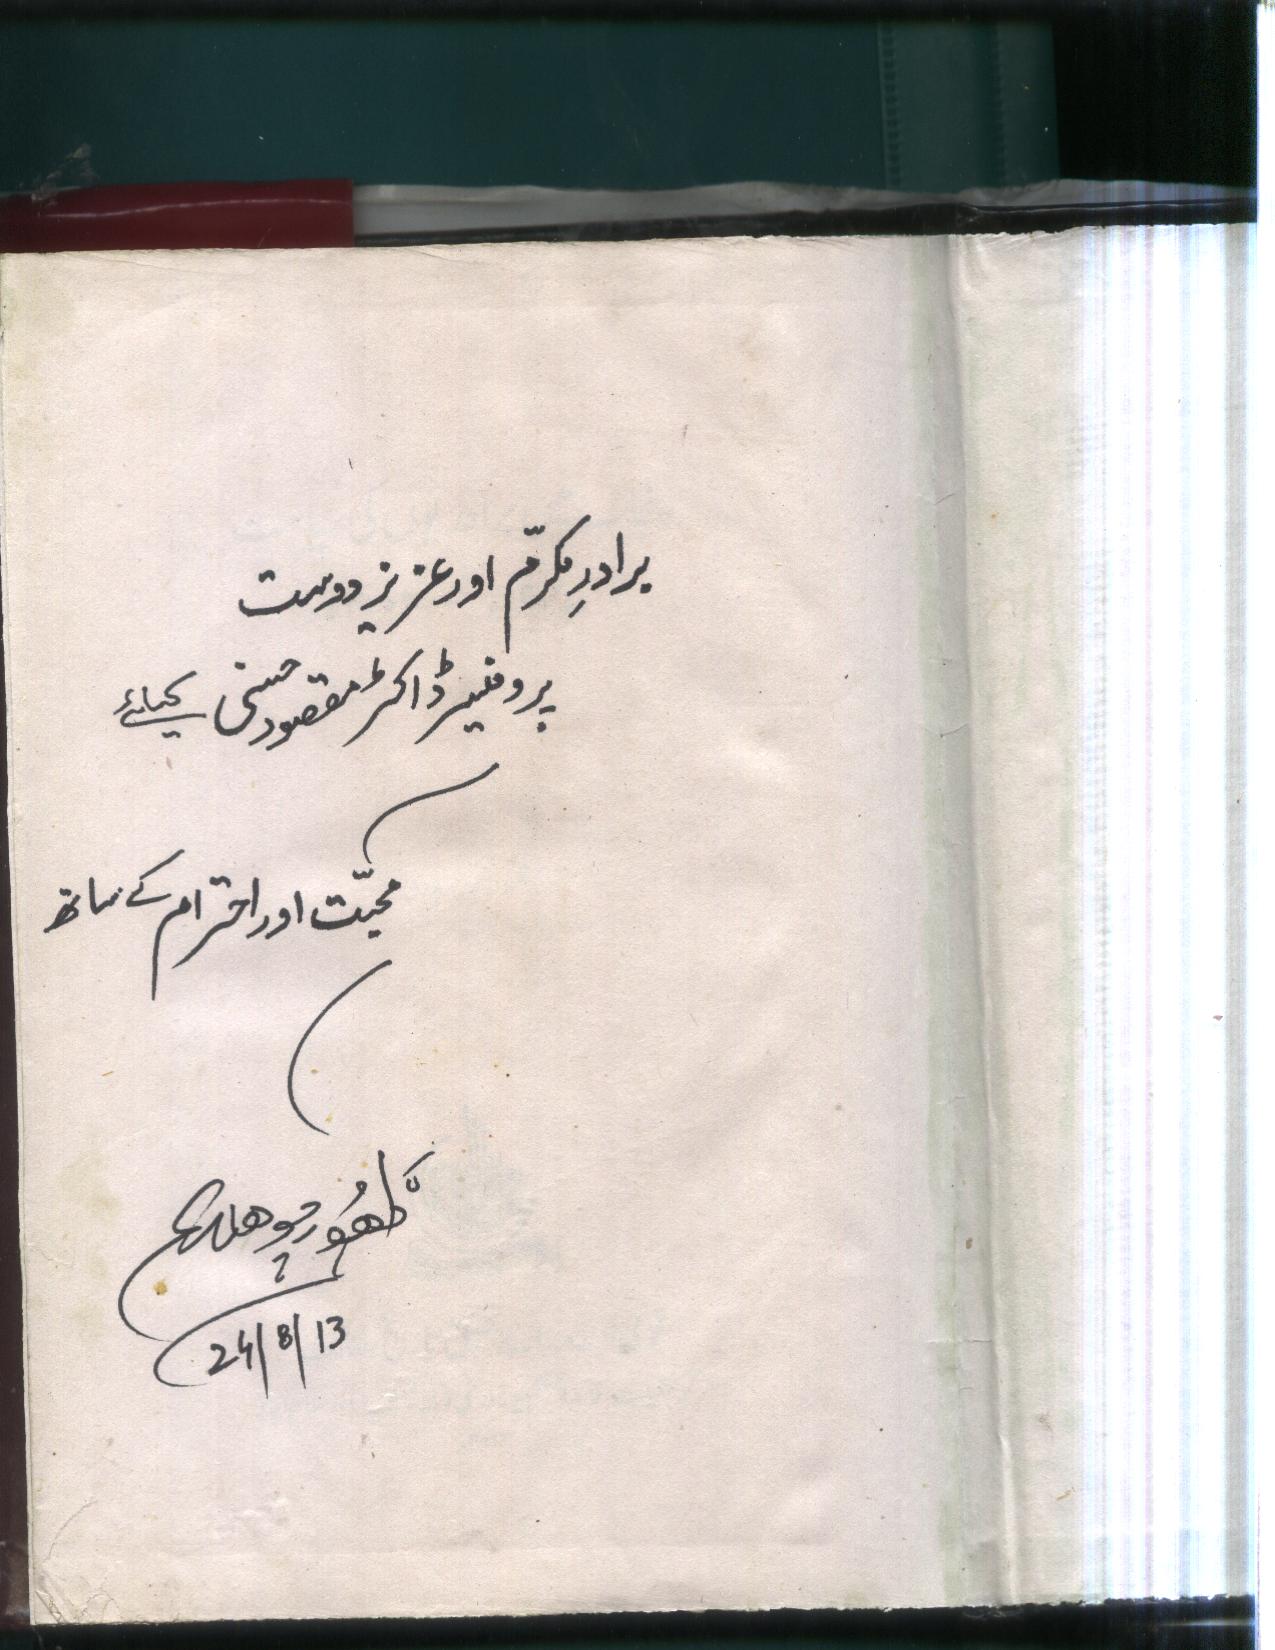 برادرِ مکرّم اور عزیز دوست
پروفیسر ڈاکٹر مقصود حسنی کیلئے
محبّت اور احترام کے ساتھ
ظہور چوہدری
24/8/13